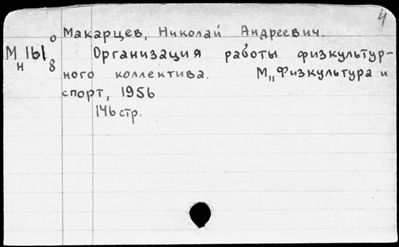 4
Макарцев, Николай Андреевич.
М 161 о
н 8
Организация работы физкультур-
ного коллектива. М., "Физкультура и
спорт, 1956
146 стр.